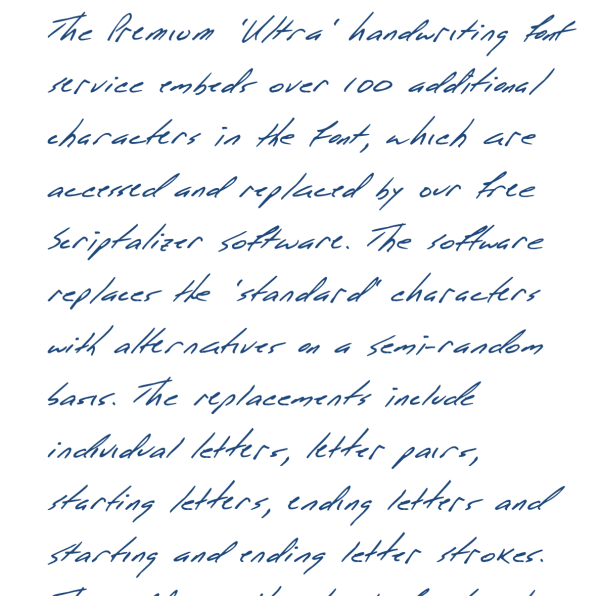 The Premium 'Ultra' handwriting font
service embeds over 100 additional
characters in the font, which are
accessed and replaced by our free
Scriptalizer software. The software
replaces the 'standard" characters
with alternatives on a semi-random
basis. The replacements include
individual letters, letter pairs,
starting letters, ending letters and
starting and ending letter strokes.